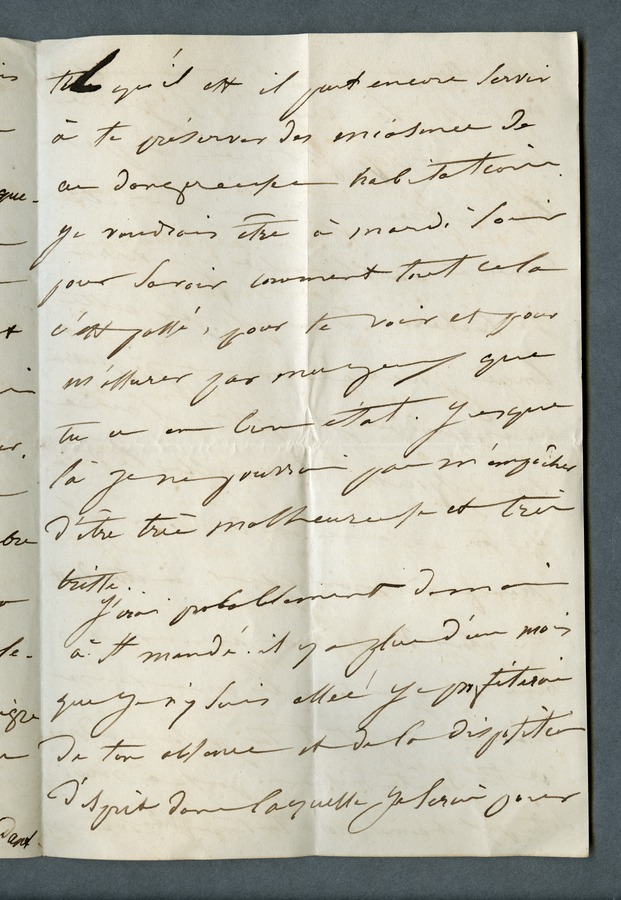 tel qu'il est il peut encore servir
à te préserver des miasmes de
ces dangereuses habitations.
je voudrais être à mardi soir
pour savoir comment tout cela
s'est passé, pour te voir et pour
m'assurer par mes yeux que
tu es en bon état. Jusque
là je ne pourrai pas m'empêcher
d'être très malheureuse et très
triste.
J'irai probablement demain
à St mandé. il y a plus d'un mois
que je n'y suis allée! je profiterai
de ton absence et de la disposition
d'esprit dans laquelle je serai pour